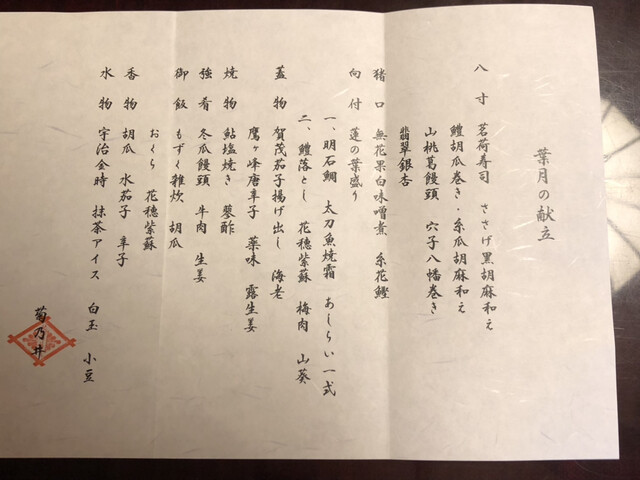 葉月の献立
八寸 茗荷寿司 ささげ黒胡麻和え
鱧胡瓜巻き・糸瓜胡麻和え
山桃葛饅頭 穴子八幡巻き
翡翠銀杏
猪口 無花果白味噌煮 糸花鰹
向付 蓮の葉盛り
一、明石鯛 太刀魚焼霜 あしらい一式
二、鱧落とし 花穂紫蘇 梅肉 山葵
蓋物 賀茂茄子揚げ出し 海老
鷹ヶ峰唐辛子 薬味 露生姜
焼物 鮎塩焼き 蓼酢
強肴 冬瓜饅頭 牛肉 生姜
御飯 もずく雑炊 胡瓜
おくら 花穂紫蘇
香物 胡瓜 水茄子 辛子
水物 宇治金時 抹茶アイス 白玉 小豆
菊乃井